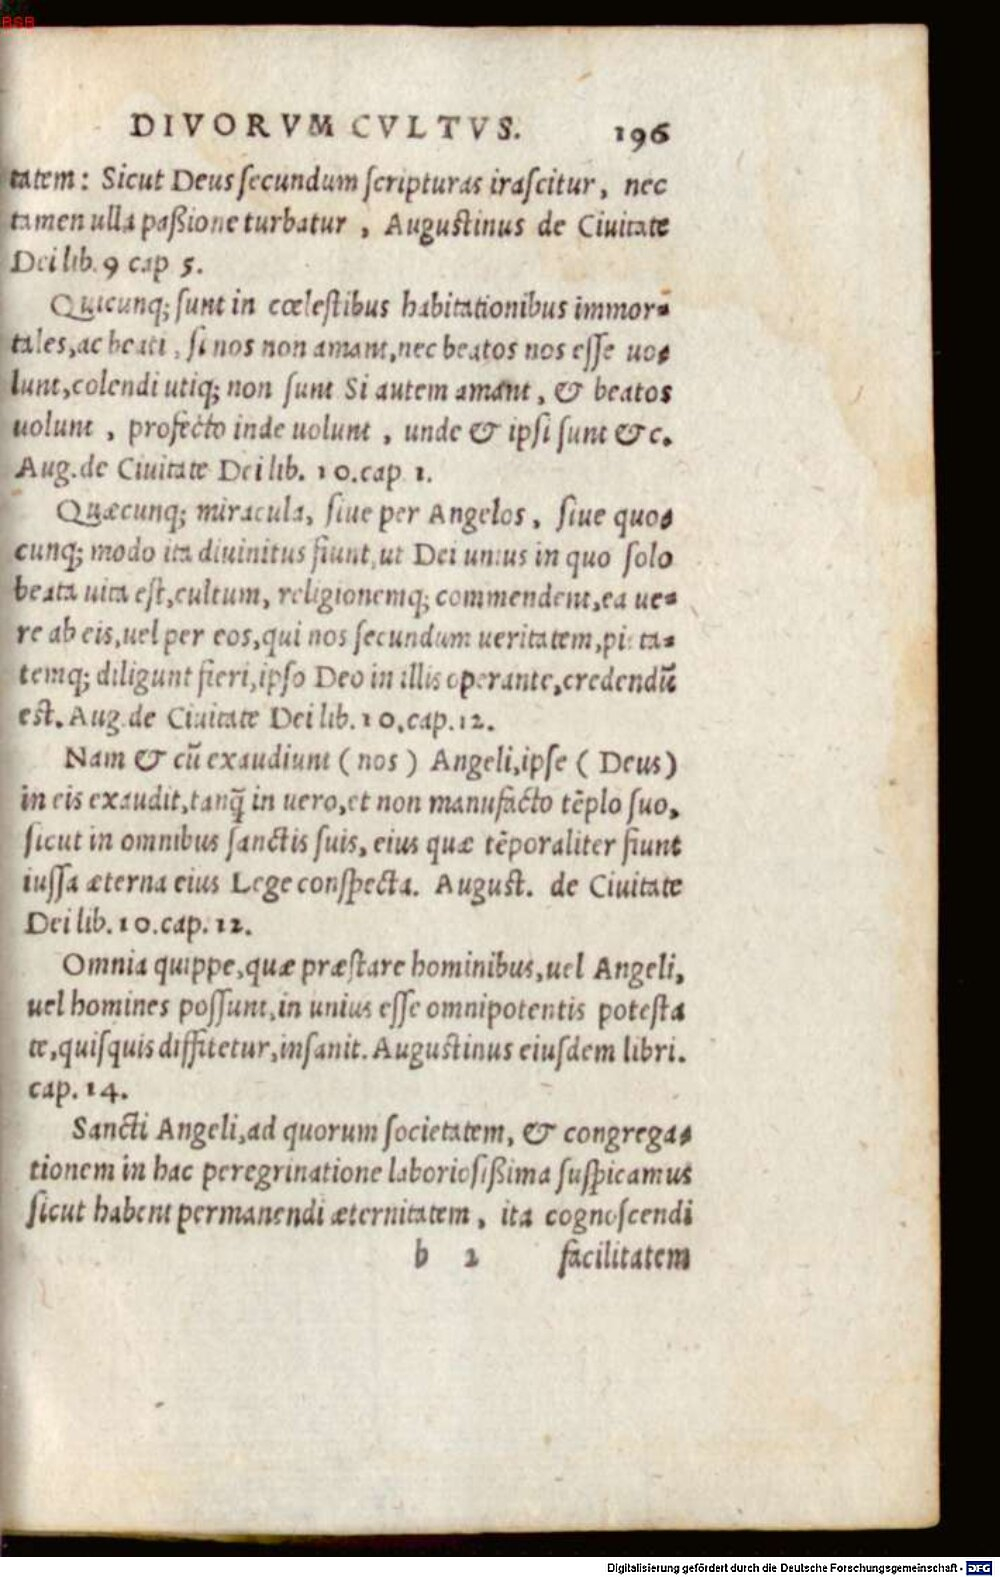 BSB
DIVORVM CVLTVS. 196
tatem: Sicut Deus ſecundum ſcripturas iraſcitur, nec
tamen ulla paßione turbatur, Auguſtinus de Ciuitate
Dei lib. 9 cap 5.
Quicunq; ſunt in cœleſtibus habitationibus immor-
tales, ac beati, ſi nos non amant, nec beatos nos eſſe uo-
lunt, colendi utiq; non ſunt Si autem amant, & beatos
uolunt, profecto inde uolunt, unde & ipſi ſunt &c.
Aug. de Ciuitate Dei lib. 10. cap 1.
Quæcunq; miracula, ſiue per Angelos, ſiue quo-
cunq; modo ita diuinitus fiunt, ut Dei unius in quo ſolo
beata uita eſt, cultum, religionemq; commendent, ea ue-
re ab eis, uel per eos, qui nos ſecundum ueritatem, pieta-
temq; diligunt fieri, ipſo Deo in illis operante, credendū
eſt. Aug. de Ciuitate Dei lib. 10. cap. 12.
Nam & cū exaudiunt (nos) Angeli, ipſe (Deus)
in eis exaudit, tanq̄ in uero, et non manufacto tēplo ſuo,
ſicut in omnibus ſanctis ſuis, eius quæ tēporaliter fiunt
iuſſa æterna eius Lege conſpecta. Auguſt. de Ciuitate
Dei lib. 10. cap. 12.
Omnia quippe, quæ præſtare hominibus, uel Angeli,
uel homines poſſunt, in unius eſſe omnipotentis poteſta
te, quiſquis diffitetur, inſanit. Auguſtinus eiuſdem libri.
cap. 14.
Sancti Angeli, ad quorum ſocietatem, & congrega-
tionem in hac peregrinatione laborioſißima ſuſpicamus
ſicut habent permanendi æternitatem, ita cognoſcendi
b 2 facilitatem
Digitalisierung gefördert durch die Deutsche Forschungsgemeinschaft - DFG